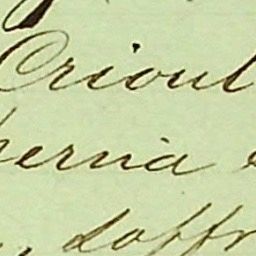 Crioul
hernia e
, soffr